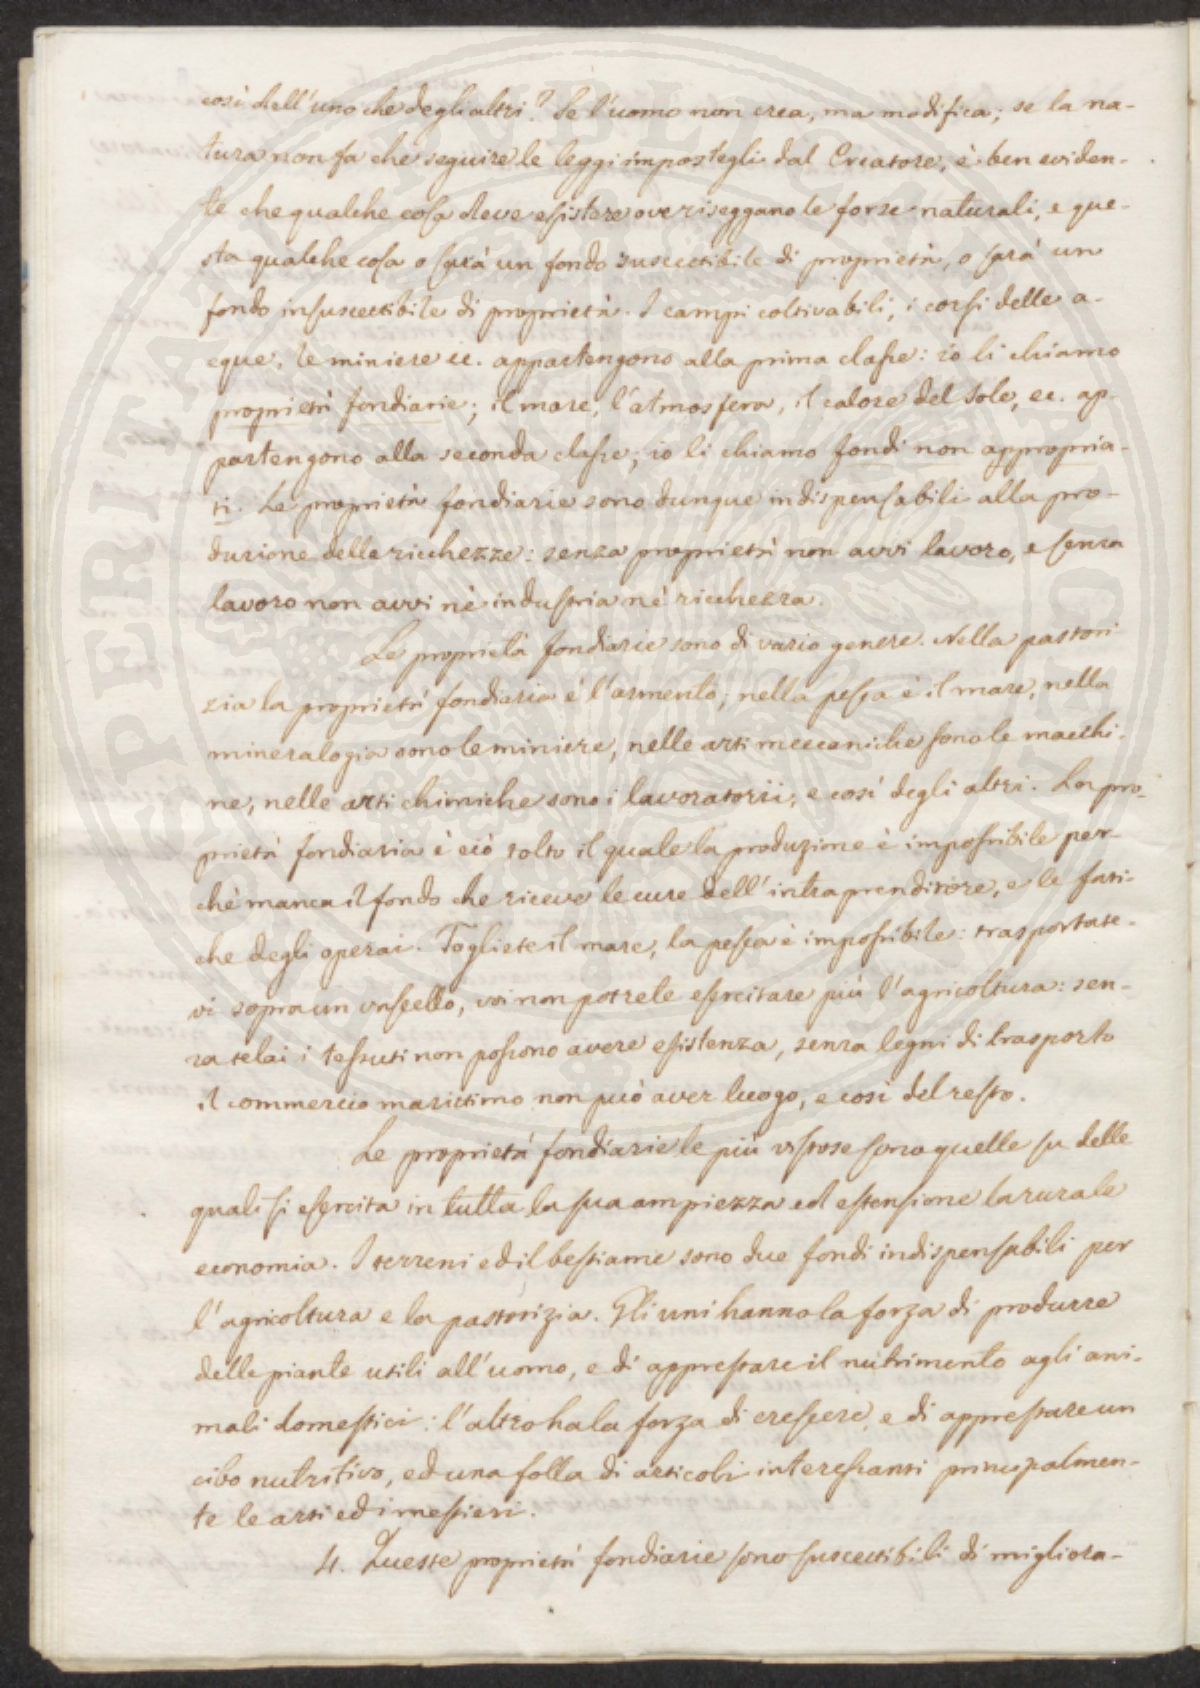 così dell'uno che degli altri? Se l'uomo non crea, ma modifica; se la na-
tura non fa che seguire le leggi impostegli dal Creatore, è ben eviden-
te che qualche cosa deve esistere ove riseggano le forze naturali, e que-
sta qualche cosa o sarà un fondo suscettibile di proprietà, o sarà un
fondo insuscettibile di proprietà. I campi coltivabili, i corsi delle a-
cque, le miniere ec. appartengono alla prima classe: io li chiamo
proprietà fondiarie; il mare, l'atmosfera, il calore del Sole, ec. ap-
partengono alla seconda classe; io li chiamo fondi non appropria-
ti. Le proprietà fondiarie sono dunque indispensabili alla pro-
duzione delle ricchezze: senza proprietà non avvi lavoro, e senza
lavoro non avvi nè industria nè ricchezza.
Le proprietà fondiarie sono di vario genere. Nella pastori-
zia la proprietà fondiaria è l'armento; nella pesca è il mare, nella
mineralogia sono le miniere, nelle arti meccaniche sono le macchi-
ne, nelle arti chimiche sono i lavoratorii, e così degli altri. La pro-
prietà fondiaria è ciò tolto il quale la produzione è impossibile per-
chè manca il fondo che riceve le cure dell'intraprenditore, e le fati-
che degli operai. Togliete il mare, la pesca è impossibile: trasportate-
vi sopra un vascello, voi non potrete esercitare più l'agricoltura: sen-
za telai i tessuti non possono avere esistenza, senza legni di trasporto
il commercio marittimo non può aver luogo, e così del resto.
Le proprietà fondiarie le più vistose sono quelle su delle
quali si esercita in tutta la sua ampiezza ed estensione la rurale
economia. I terreni ed il bestiame sono due fondi indispensabili per
l'agricoltura e la pastorizia. Gli uni hanno la forza di produrre
delle piante utili all'uomo, e di apprestare il nutrimento agli ani-
mali domestici: l'altro ha la forza di crescere, e di apprestare un
cibo nutritivo, ed una folla di articoli interessanti principalmen-
te le arti ed i mestieri.
4. Queste proprietà fondiarie sono suscettibili di migliora-